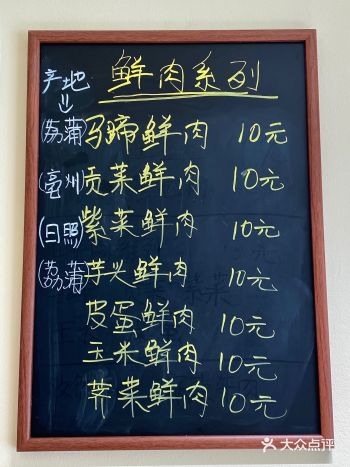 鲜肉系列
产地
(荔蒲)马蹄鲜肉 10元
(亳州)贡菜鲜肉 10元
(日照)紫菜鲜肉 10元
(荔蒲)芋头鲜肉 10元
皮蛋鲜肉 10元
玉米鲜肉 10元
荠菜鲜肉 10元
大众点评